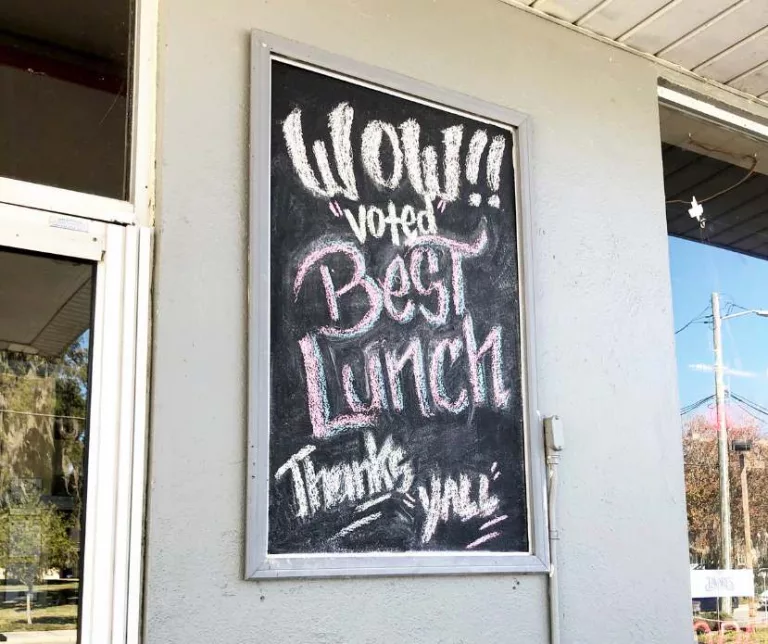 WOW!!
"voted"
BesT
Lunch
Thanks
YALL'